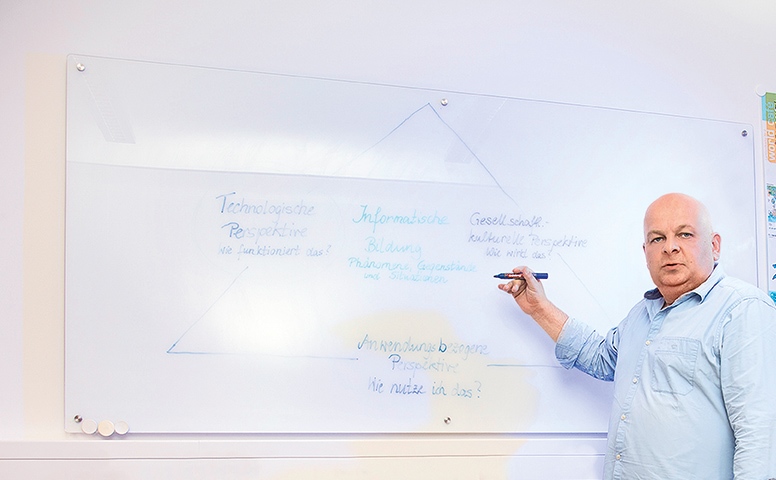 Technologische
Perspektive
Wie funktioniert das?
Informatische
Bildung
Phänomene, Gegenstände
und Situationen
Gesellschaftl.-
kulturelle Perspektive
Wie wirkt das?
Anwendungsbezogene
Perspektive
Wie nutze ich das?
world